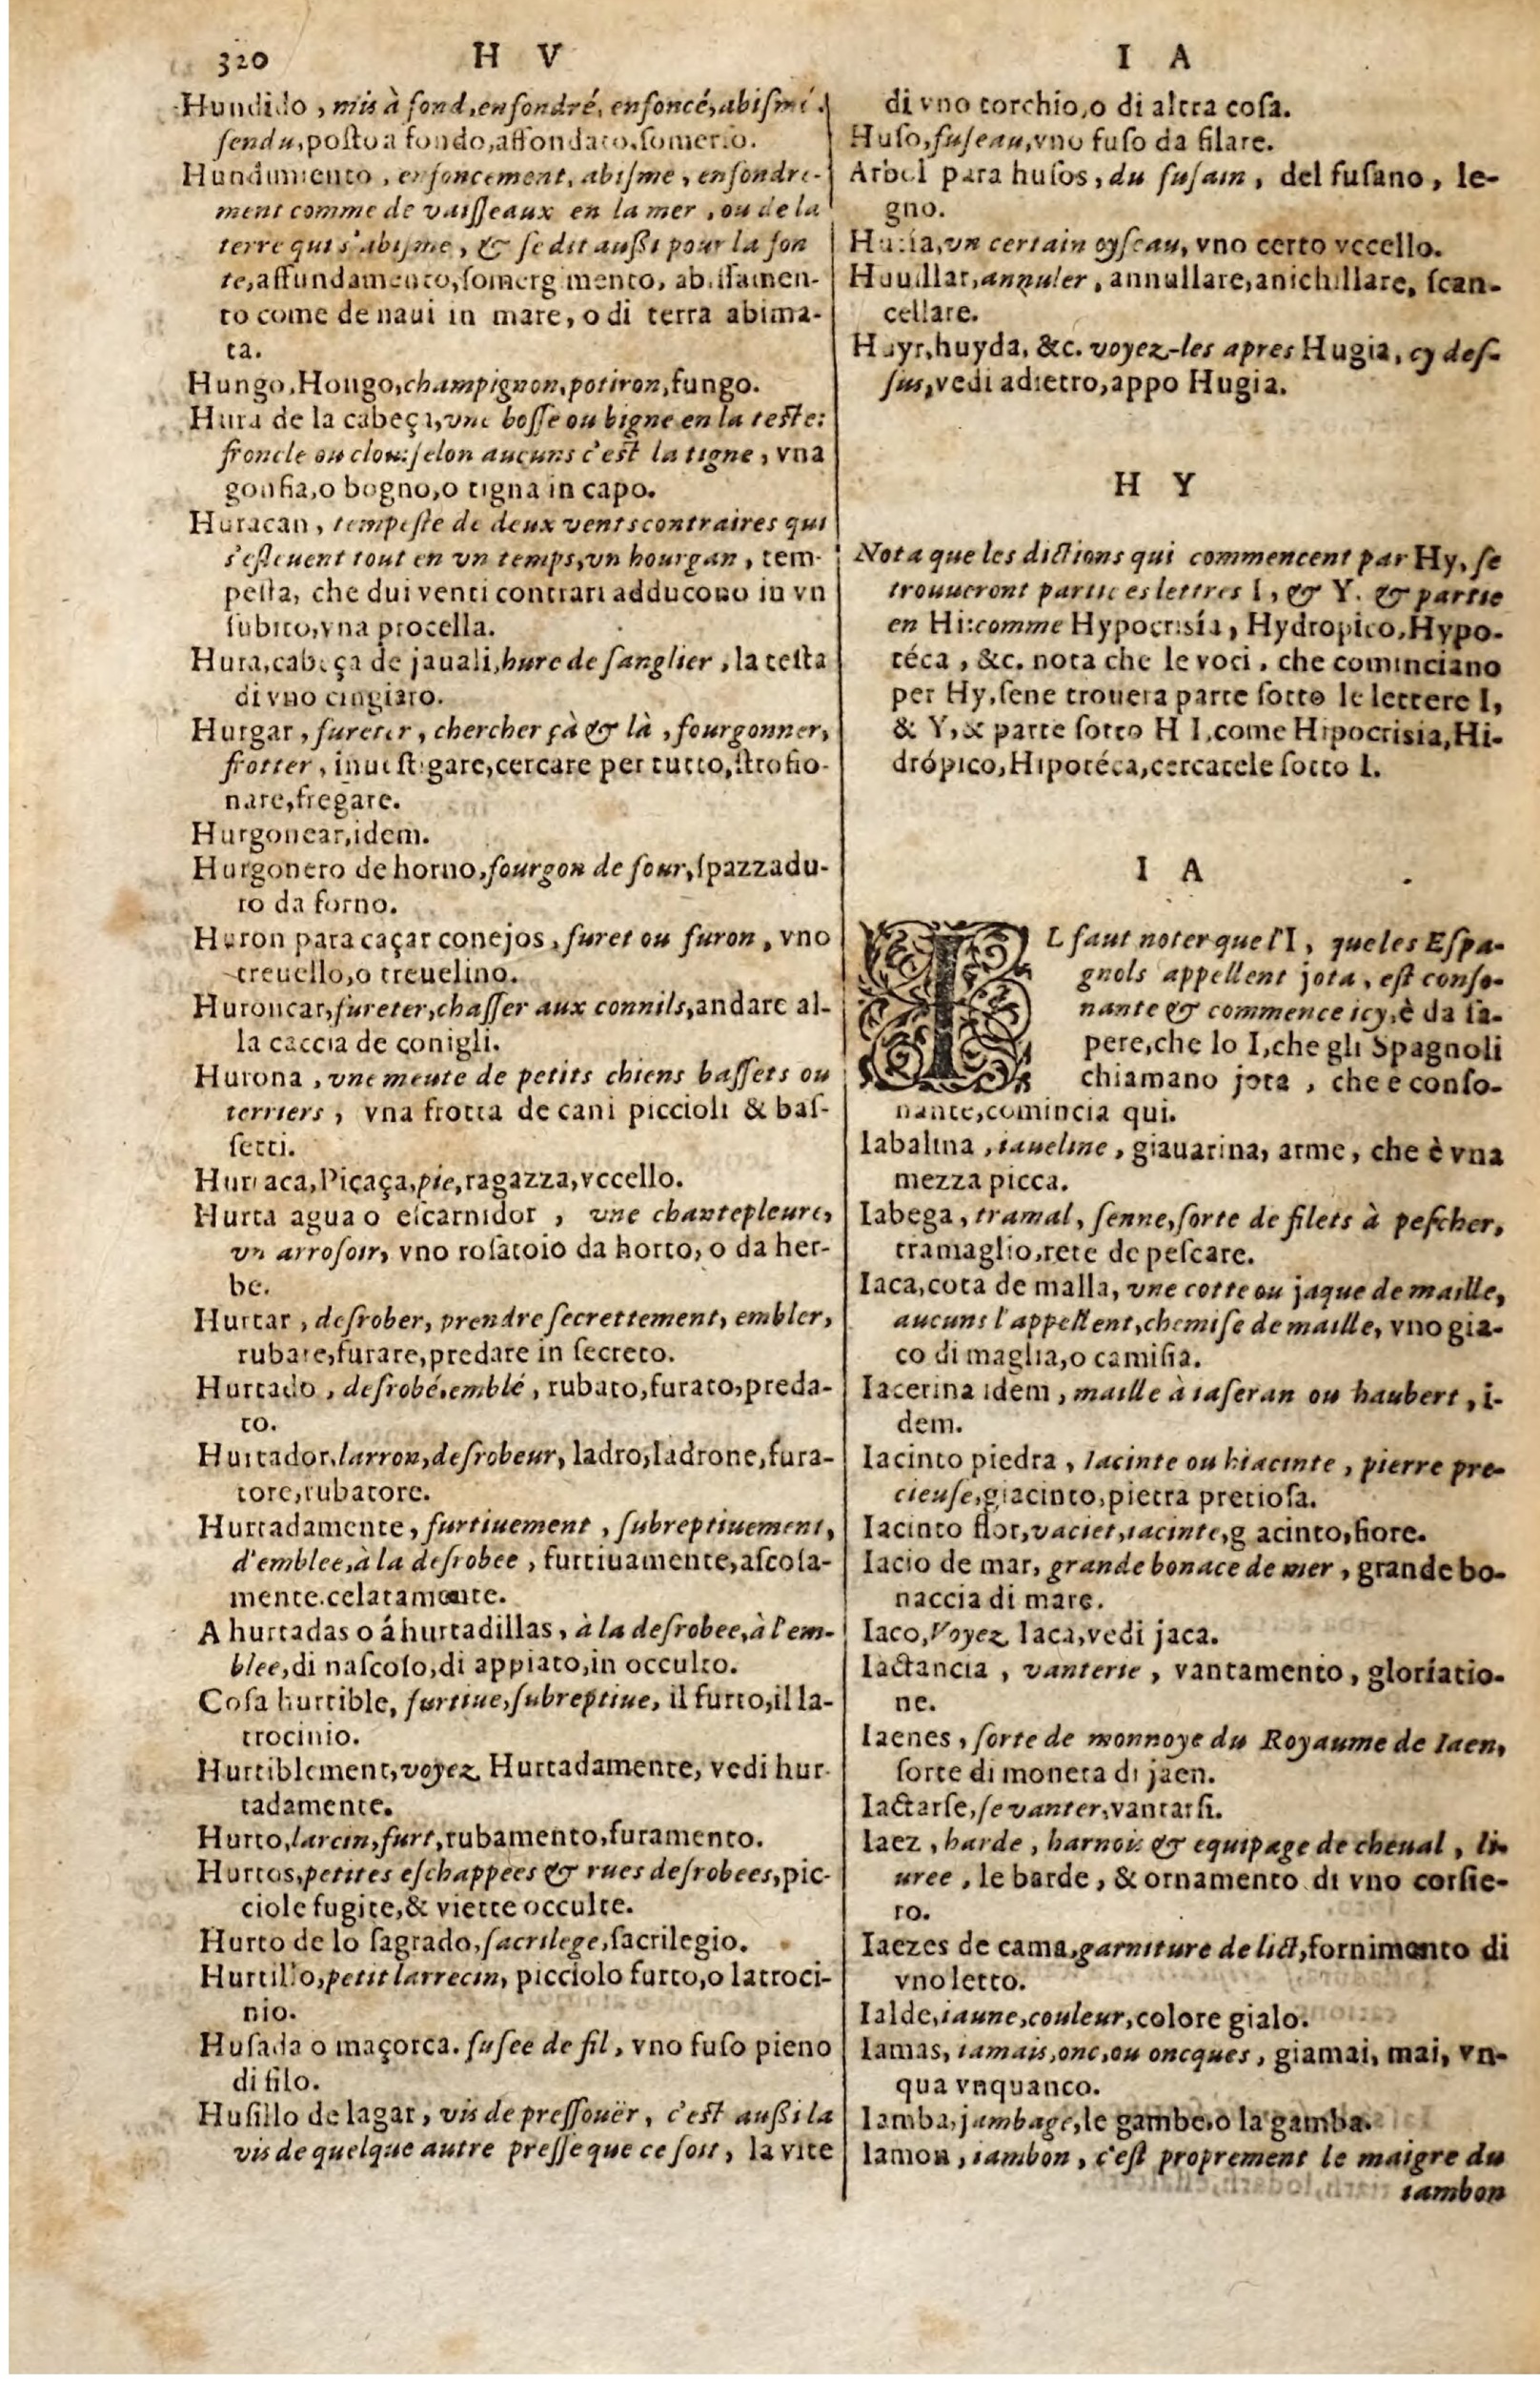 320
H V
I A
Hundido, mis à fond, enfondré, enfoncé, abiſmé.
fendu, poſto a fondo, affondato, ſomerſo.
Hundimiento, enfoncement, abiſme, enfondre-
ment comme de vaiſſeaux en la mer, ou de la
terre qui s'abiſme, & ſe dit außi pour la fon
te, affundamento, ſomergimento, abiſſamen-
to come de naui in mare, o di terra abima-
ta.
Hungo, Hongo, champignon, potiron, fungo.
Hura de la cabeça, vne boſſe ou bigne en la teſte:
froncle ou clou: ſelon aucuns c'eſt la tigne, vna
gonfia, o bogno, o tigna in capo.
Huracan, tempeſte de deux vents contraires qui
s'eſleuent tout en vn temps, vn hourgan, tem-
peſta, che dui venti contrari adducono in vn
ſubito, vna procella.
Hura, cabeça de jauali, hure de ſanglier, la teſta
di vno cingiaro.
Hurgar, fureter, chercher çà & là, fourgonner,
frotter, inueſtigare, cercare per tutto, ſtrofio-
nare, fregare.
Hurgonear, idem.
Hurgonero de horno, fourgon de four, ſpazzadu-
ro da forno.
Huron para caçar conejos, furet ou furon, vno
treuello, o treuelino.
Huronear, fureter, chaſſer aux connils, andare al-
la caccia de conigli.
Hurona, vne meute de petits chiens baſſets ou
terriers, vna frotta de cani piccioli & baſ-
ſetti.
Hurraca, Picaça, pie, ragazza, vccello.
Hurta agua o eſcarnidor, vne chantepleure,
vn arroſoir, vno roſatoio da horto, o da her-
be.
Hurtar, deſrober, prendre ſecrettement, embler,
rubare, furare, predare in ſecreto.
Hurtado, deſrobé, emblé, rubato, furato, preda-
to.
Hurtador, larron, deſrobeur, ladro, ladrone, fura-
tore, rubatore.
Hurtadamente, furtiuement, ſubreptiuement,
d'emblee, à la deſrobee, furtiuamente, aſcoſa-
mente. celatamente.
A hurtadas o á hurtadillas, à la deſrobee, à l'em-
blee, di naſcoſo, di appiato, in occulto.
Coſa hurtible, furtiue, ſubreptiue, il furto, il la-
trocinio.
Hurtiblement, voyez Hurtadamente, vedi hur-
tadamente.
Hurto, larcin, furt, rubamento, furamento.
Hurtos, petites eſchappees & rues deſrobees, pic-
ciole fugite, & viette occulte.
Hurto de lo ſagrado, ſacrilege, ſacrilegio.
Hurtillo, petit larrecin, picciolo furto, o latroci-
nio.
Huſada o maçorca. fuſee de fil, vno fuſo pieno
di filo.
Huſillo de lagar, vis de preſſouër, c'eſt außi la
vis de quelque autre preſſe que ce ſoit, la vite
di vno torchio, o di altra coſa.
Huſo, fuſeau, vno fuſo da filare.
Arbol para huſos, du fuſain, del fuſano, le-
gno.
vn certain oyſeau, vno certo vccello.
Huuillar, annuler, annullare, anichillare, ſcan-
cellare.
Huyr, huyda, &c. voyez-les apres Hugia, cy deſ-
ſus, vedi adietro, appo Hugia.
H Y
Nota que les dictions qui commencent par Hy, ſe
trouueront partie es lettres I, & Y. & partie
en Hi: comme Hypocrisía, Hydropico, Hypo-
téca, &c. nota che le voci, che cominciano
per Hy, ſene trouera parte ſotto le lettere I,
& Y, & parte ſotto H I, come Hipocrisia, Hi-
drópico, Hipotéca, cercatele ſotto I.
I A
IL faut noter que l'I, que les Eſpa-
gnols appellent jota, eſt conſo-
nante & commence icy, è da ſa-
pere, che lo I, che gli Spagnoli
chiamano jota, che e conſo-
nante, comincia qui.
Iabalina, iaueline, giauarina, arme, che è vna
mezza picca.
Iabega, tramal, ſenne, ſorte de filets à peſcher,
tramaglio, rete de peſcare.
Iaca, cota de malla, vne cotte ou jaque de maille,
aucuns l'appellent, chemiſe de maille, vno gia-
co di maglia, o camiſia.
Iacerina idem, maille à iaſeran ou haubert, i-
dem.
Iacinto piedra, Iacinte ou hiacinte, pierre pre-
cieuſe, giacinto, pietra pretioſa.
Iacinto flor, vaciet, iacinte, giacinto, fiore.
Iacio de mar, grande bonace de mer, grande bo-
naccia di mare.
Iaco, Voyez Iaca, vedi jaca.
Iactancia, vanterie, vantamento, gloriatio-
ne.
Iaenes, ſorte de monnoye du Royaume de Iaen,
ſorte di moneta di jaen.
Iactarſe, ſe vanter, vantarſi.
Iaez, harde, harnois & equipage de cheual, li-
uree, le barde, & ornamento di vno corſie-
ro.
Iaezes de cama, garniture de lict, fornimento di
vno letto.
Ialde, iaune, couleur, colore gialo.
Iamas, iamais, onc, ou oncques, giamai, mai, vn-
qua vnquanco.
Iamba, jambage, le gambe, o la gamba.
Iamon, iambon, c'eſt proprement le maigre du
iambon